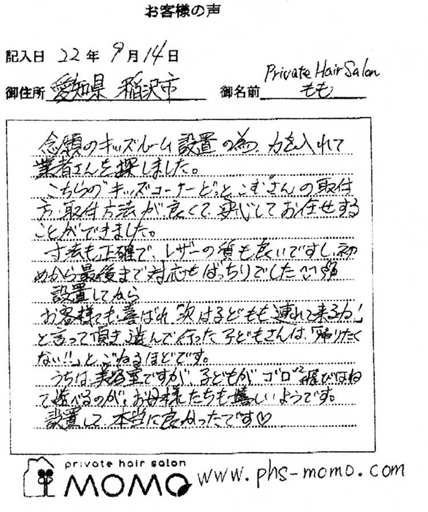 お客様の声
記入日 22年 9月14日
御住所 愛知県 稲沢市 御名前 Private Hair Salon
もも
念願のキッズルーム設置の為、力を入れて
業者さんを探しました。
こちらの"キッズコーナードットこむ"さんの取付
方、取付方法が良くて、安心してお任せする
ことができました。
寸法も正確で、レザーの質も良いですし、初
めから最後まで対応もばっちりでした
設置してから
お客様でも喜ばれ「次は子どもも連れて来るね!」
と言って頂き遊んで行った子どもさんは、「帰りたく
ない!!」と、こねるほどです。
うちは、美容室ですが、子どもがゴロゴロ飛びはね
て遊べるのが、お母様たちも嬉しいようです。
設置して 本当に良かったです♡
private hair salon
MOMO www.phs-momo.com